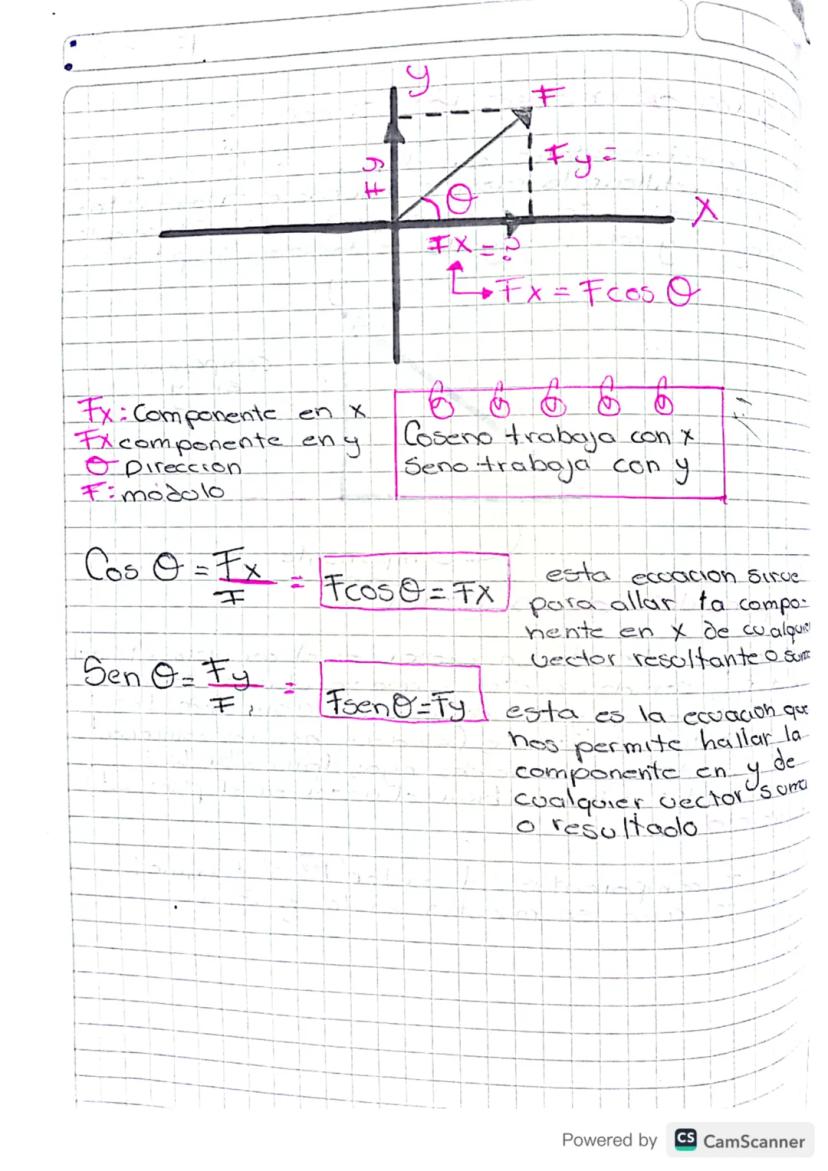 y
F
Fy
Fy =
θ
X
Fx = ?
Fx = Fcos θ
Fx: Componente en x
Fx componente en y
θ Dirección
F: módulo
Coseno trabaja con x
Seno trabaja con y
Cos θ = Fx/F = Fcosθ = FX
esta ecuacion sirve
para allar la compo-
nente en x de cualquie
vector resultante o sum
Sen θ = Fy/F = Fsenθ = Fy
esta es la ecuacion que
nos permite hallar la
componente en y de
cualquier vector suma
o resultado
Powered by CS CamScanner